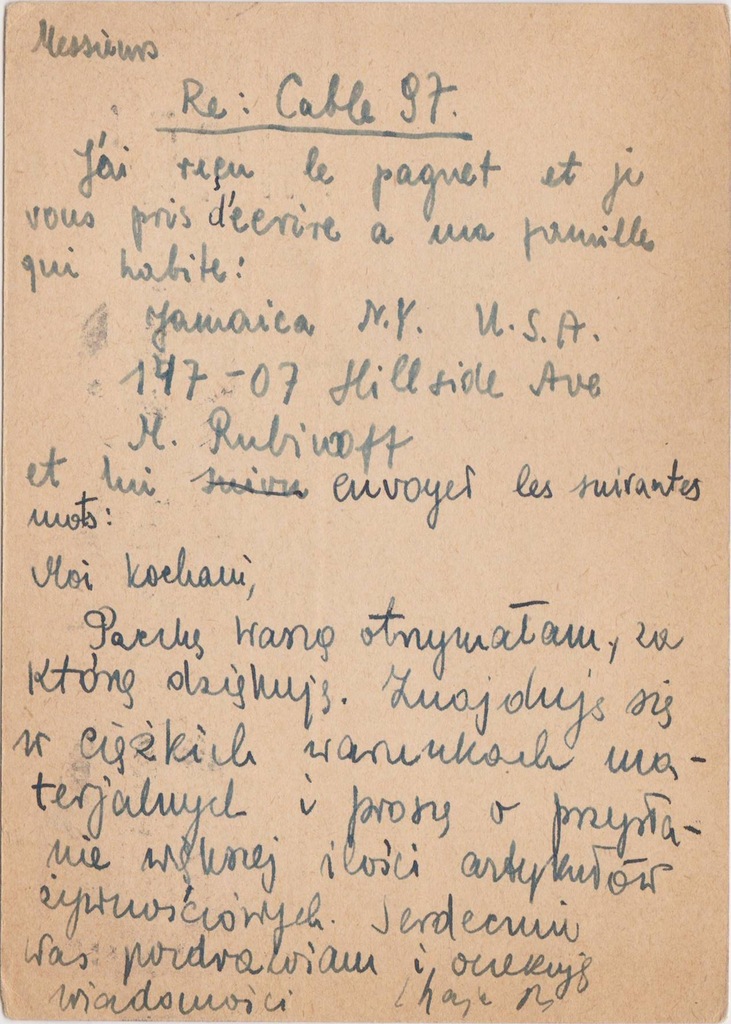 Messieurs
Re: Cable 97.
J'ai reçu le paquet et je
vous pris d'ecrire a ma famille
qui habite:
Jamaica N.Y. U.S.A.
147-07 Hillside Ave
M. Rubinoff
et lui envoyer les suivantes
mots:
Moi kochani,
Paczkę waszą otrzymałam, za
którą dziękuję. Znajduję się
w ciężkich warunkach ma-
terjalnych i proszę o przysła-
nie większej ilości artykułów
żywnościowych. Serdecznie
was pozdrawiam i oczekuję
wiadomości Chaja